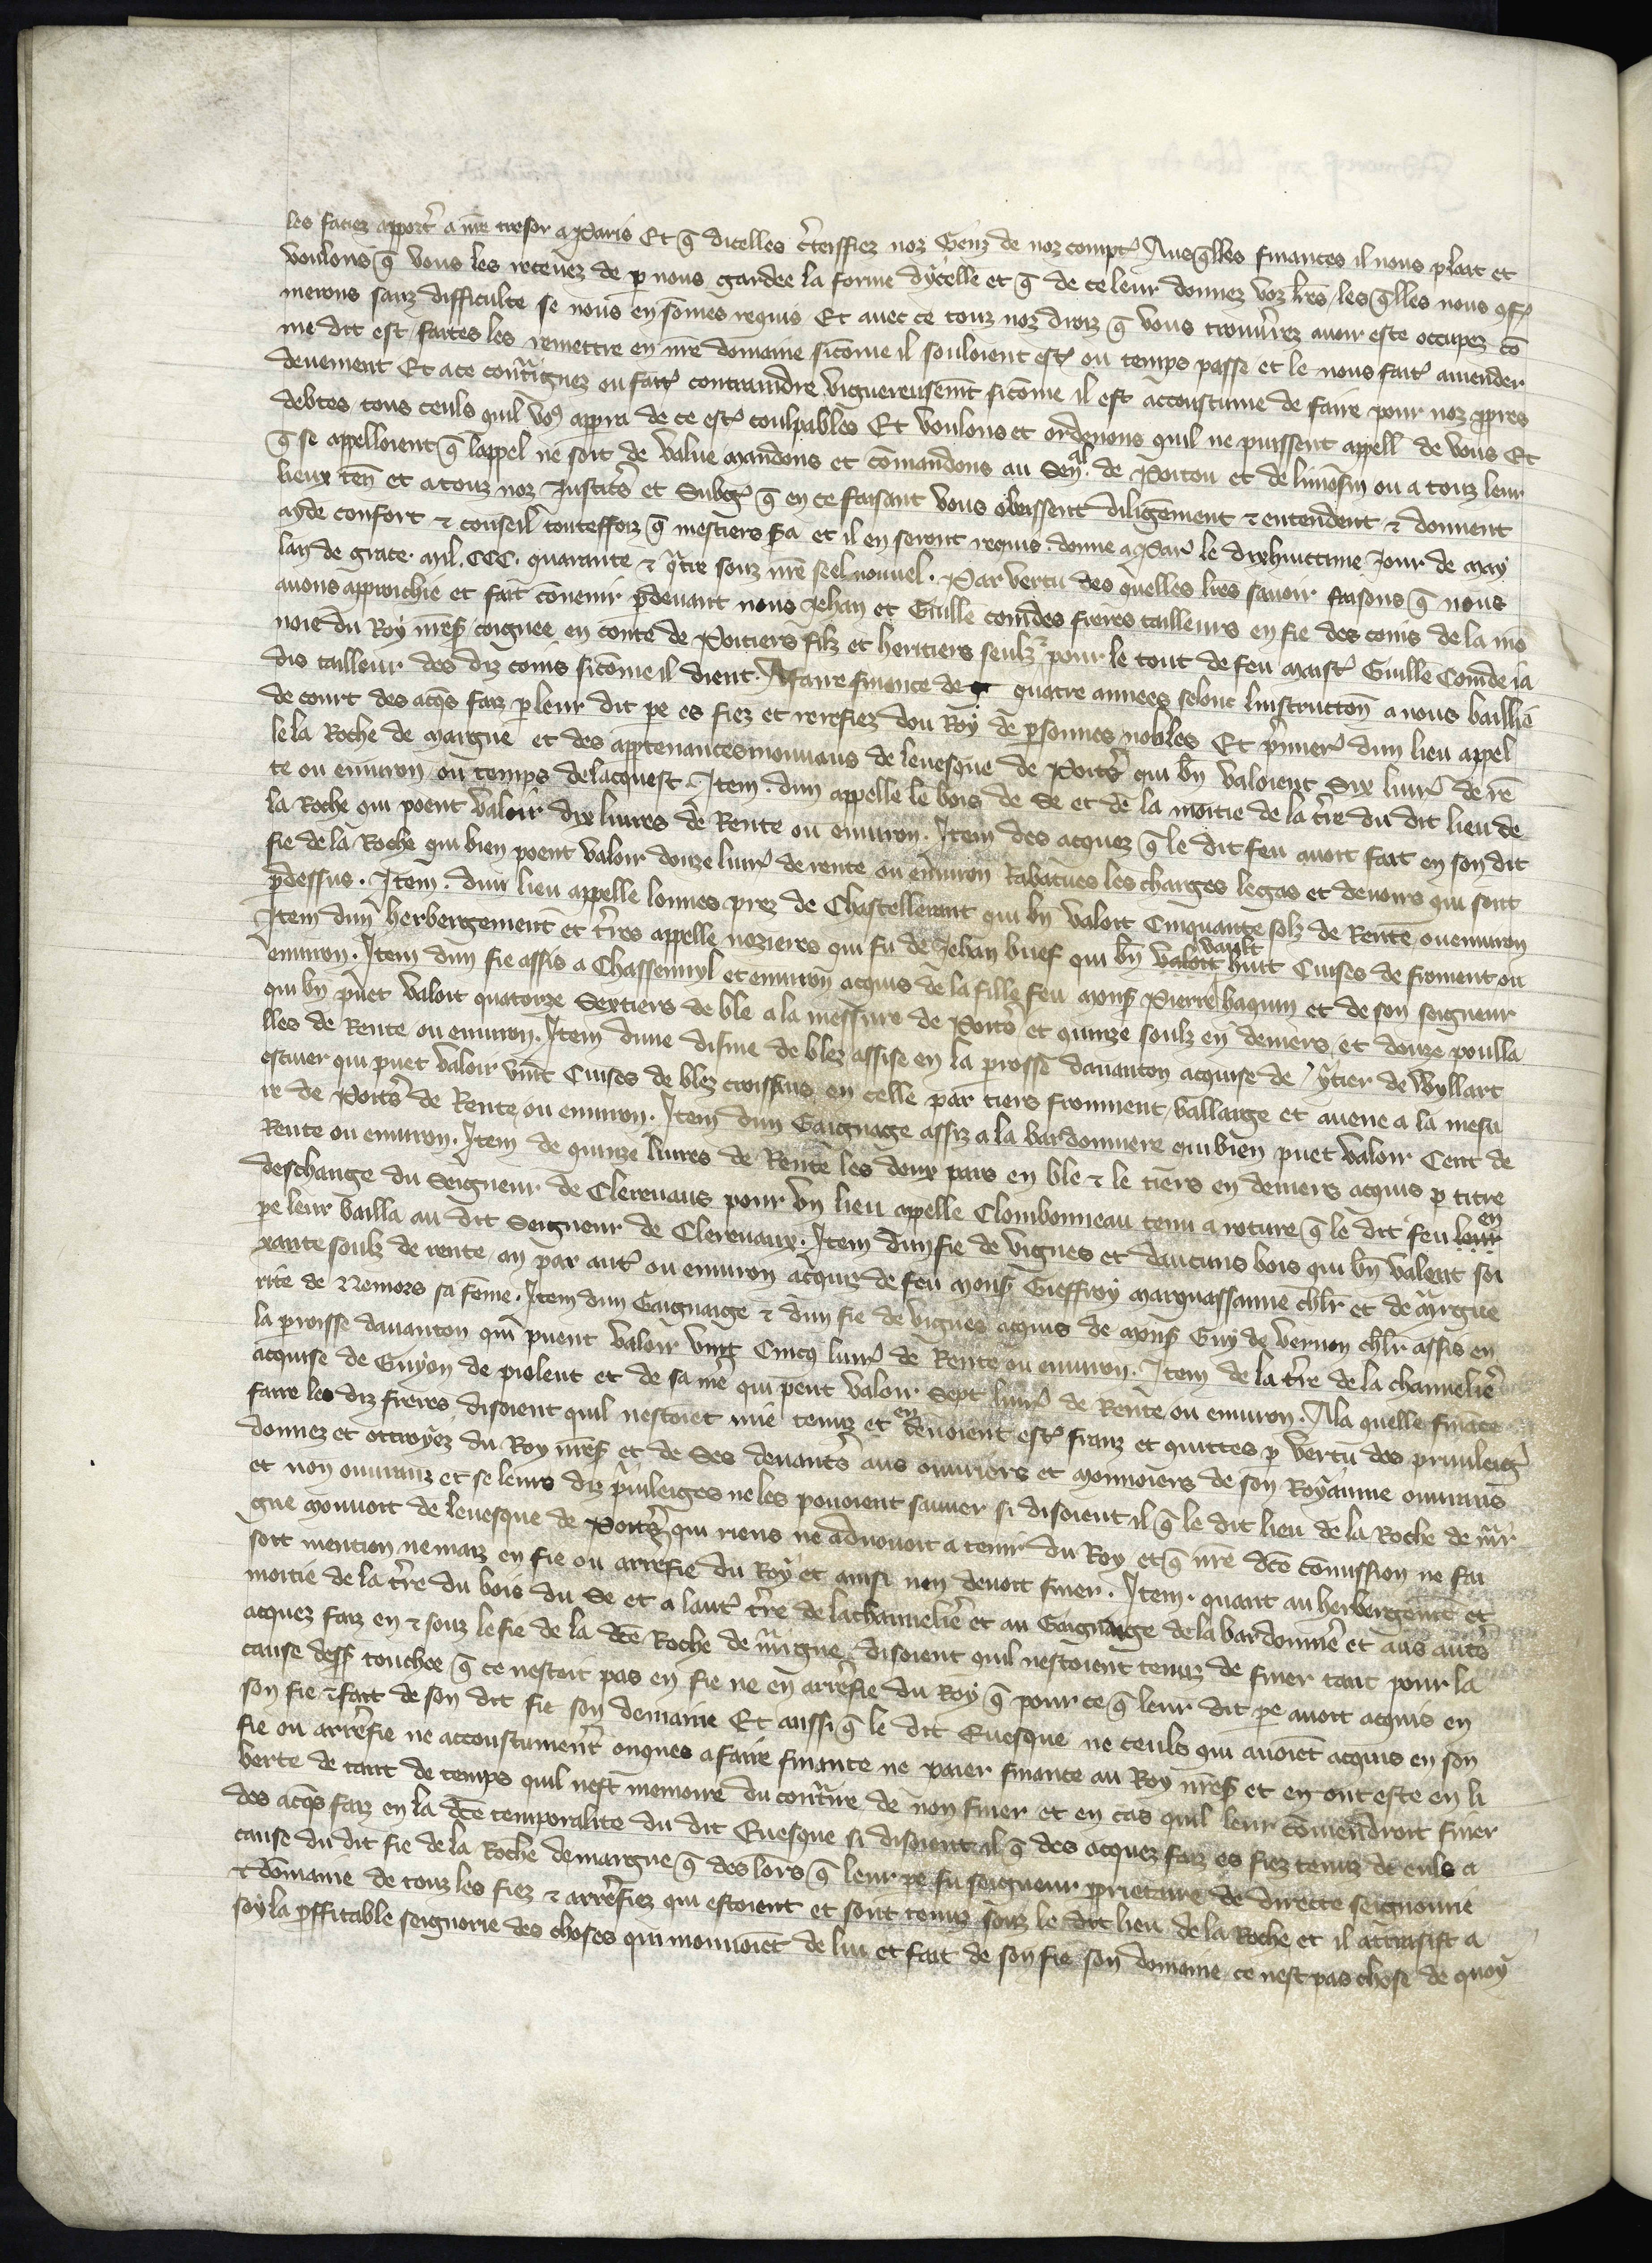 les faciez apport̾ a nr̃e tresor a Paris Et q̃ dicelles c̾teffiez noz Genz de noz compt̾ Ausq̃lles finances il nous plait et
voulons q̃ vous les recevez de p nous gardee la forme dycelle et q̃ de ce leur donnez voz lr̃es, les q̃lles nous 9f̾
merons sanz difficulte se nous en som̃es requis Et avec ce touz noz droiz q̃ vous trouv̾rez avoir este occupez cõ
me dit est, faites les remettre en nr̃e domaine sicom̃e il souloient est̾ ou temps passe et le nous fait̾ amender
deuement Et a ce cont̾ignez ou fait̾ contraindre viguereusemt̃ sicom̃e il est acoustume de faire pour noz ppres
debtes, tous ceuls quil vo9 appra de ce est̾ coulpables Et voulons et ordenons quil ne puissent appell̾ de vous Et
q̃ se appelloient q̃ lappel ne soit de value mandons et com̃andons au Sen̾al. de Poitou et de limosin ou a touz leur
lieux teñ et a touz noz Justic̾s et Subg̾ q̃ en ce faisant vous obeissent diligẽment & entendent & donnent
ayde confort & conseil toutesfoiz q̃ mestiers s̾a et il en seront requis. donne a Par̾ le dixhuictime Jour de may
lan de grace. mil. CCC. quarante & q̾tre souz nr̃e seel nouvel. Par vertu des quelles lr̃es savoir faisons q̃ nous
avons approichie et fait cõvenir p̃devant nous Jehan et Guille com̃des freres tailleurs en fie des coins de la mõ
noie du Roy nr̃eS̾ coignee en conte de Poitiers filz et heritiers seulz pour le tout de feu maist̾ Guille Com̃de ia
dis tailleur des diz coins sicom̃e il dient. A faire finance de quatre annees selonc linstructioñ a nous baillee
de court des acq̾s faiz p leur dit pe es fiez et rerefiez dou Roy de psonnes nobles Et p̾mier̾ dun lieu appel
le la Roche de margne et des apptenances mouvans de levesque de Poit̾s qui bñ valoient Six livr̾ de rẽ
te ou environ, ou temps de lacquest. Item. dun appelle le bois de Se et de la moitie de la t̾re du dit lieu de
la Roche qui poent valoir dix livres de Rente ou environ. Item des acquez q̃ le dit feu avoit fait en son dit
fie de la Roche qui bien poent valoir douze livr̾ de rente ou environ Rabatues les charges legas et devoirs qui sont
p̃dessus. Item. dun lieu appelle lonnes prez de Chastelleraut qui bñ valoit Cinquante solz de Rente ou environ
Item dun herbergement et t̾res appelle nozieres qui fu de Jehan buef qui bñ valoit vault huit Cuises de froment ou
environ. Item dun fie assis a Chasseneuyl et environ acquis de la fille feu monS̾ Pierre baquin et de son seigneur
qui bñ puet valoir quatorze Sextiers de ble a la messure de Poit̾s et quinze soulz en deniers et douze poulla
lles de Rente ou environ. Item dune disme de blez assise en la prosse davanton acquise de q̾tier de Wyllart
escuier qui puet valoir vint Cuises de blez croissans en celle par tiers fronment, ballarge et avene a la mesu
re de Poit̾s de Rente ou environ. Item dun Gaignage assiz a la bardonniere qui bien puet valoir Cent de
Rente ou environ. Item de quinze livres de Rente les doux pars en ble & le tiers en deniers acquis p titre
deschange du Seigneur de Clerevaus pour un lieu appelle Clombonneau tenu a roture q̃ le dit feu leur en
pe leur bailla au dit Seigneur de Clerevaux. Item dun fie de vignes et daucuns bois qui bñ valent soi
xante soulz de rente, an par aut̾ ou environ acquz de feu monS̾ Gieffroy marquassanne chlr̃ et de m̾rgue
rite de Nemors sa fem̃e. Item dun Gaignaige & dun fie de vignes acquis de monS̾ Guy de vernon chlr̃ assis en
la proisse davanton qui puent valoir vint Cincq livr̾ de Rente ou environ. Item de la t̾re de la channelie̾
acquise de Guyon de piolent et de sa m̾e qui pent valoir Sept livr̾ de Rente ou environ. A la quelle finãce
faire les diz freres disoient quil nestoiet mie tenuz et en devoient est̾ franz et quittes p vertu des privileig̾
donnez et ottroyez du Roy nr̃eS̾ et de Ses devanc̾s aus ouvriers et monnoiers de son Royaume ouvrans
et non ouvranz et se leurs diz p̾vileiges ne les povoient sauver si disoient il q̃ le dit lieu de la Roche de m̾r
gne mouvoit de levesque de Poit̾s qui riens ne advouoit a tenir du Roy et q̃ nr̃e dc̃e com̃ission ne fai
soit mention ne maiz en fie ou arrefie du Roy et ainsi non devoit finer. Item. quant au herbergem̃t et
moitie de la t̾re du bois du Se et a laut̾ t̾re de lachannelie̾ et au Gaignage de la bardonnie̾ et aus aut̾s
acquez faiz en & souz le fie de la dc̃e Roche de m̾rgne, disoient quil nestoient tenuz de finer tant pour la
cause desS̾ touchee q̃ ce nestoit pas en fie ne en arrefie du Roy q̃ pour ce q̃ leur dit pe avoit acquis en
son fie & fait de son dit fie son demaine Et aussi q̃ le dit Evesque ne ceuls qui avoiẽt acquis en son
fie ou arrefie ne accoustumer̾t onques a faire finance ne paier finance au Roy nr̃eS̾ et en ont este en li
berte de tant de temps quil nest memoire du cont̾re de non finer et en cas quil leur convendroit finer
des acq̾s faiz en la dc̃e temporalite du dit Evesque si disoient il q̃ des acquez faiz es fiez tenuz de euls a
cause du dit fie de la Roche demargne q̃ des lors q̃ leur pe fu seigneur pprietaire de directe seignourie
& domaine de touz les fiez & arrefiez qui estoient et sont tenuz souz le dit lieu de la Roche et il attraisist a
soy la pffitable seignorie des choses qui mouvoiẽt de lui et fait de son fie son domaine ce nest pas chose de quoy